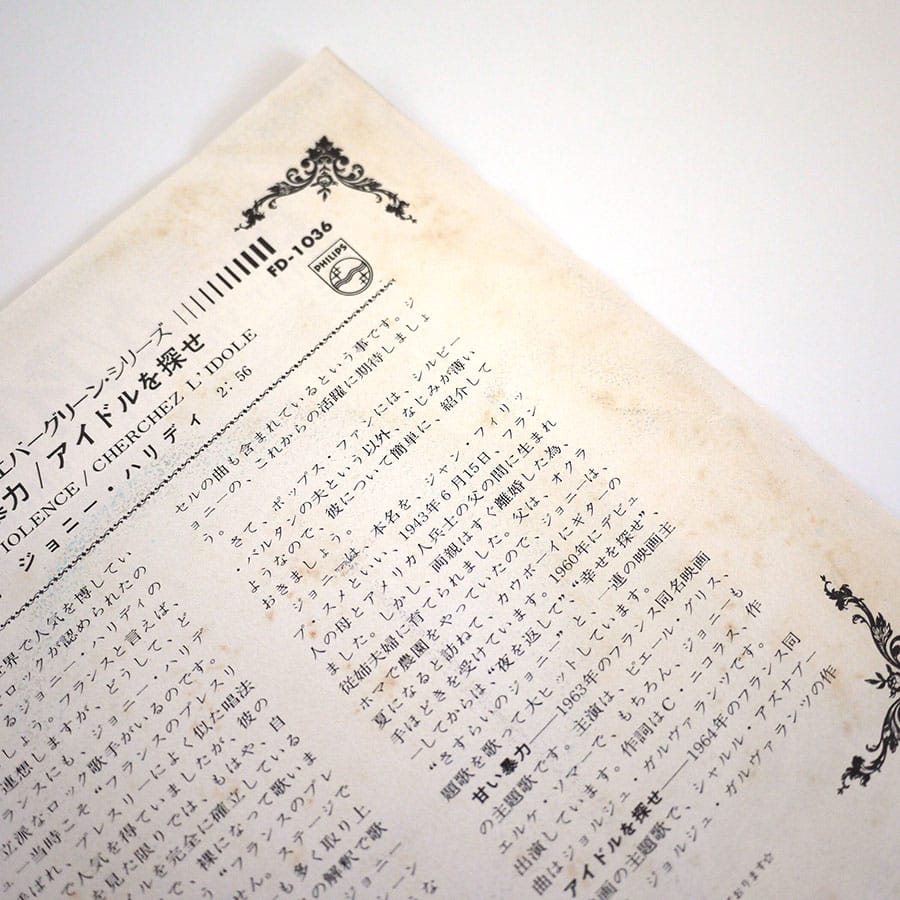 エバーグリーン・シリーズ
FD-1036
PHILIPS
力/アイドルを探せ
IOLENCE / CHERCHEZ L'IDOLE
ジョニー・ハリディ 2:56
世界で人気を博してい
ロックが認められたの
るジョニー・ハリディの
しょう。フランスと言えば、
連想しますが、どうして、ど
ランスにも、ジョニー・ハリデ
立派なロック歌手がいるのです。
ュー当時こそ“フランスのプレスリ
ばれ、プレスリーによく似た唱法
で人気を得ていましたが、彼の
を見た限りでは、もはや、自
ルを完全に確立している
で、裸になって歌いま
う“フランスのプレ
せん。ステージで
も多く取り上
の解釈で歌
ジョニー
シーン
セルの曲も含まれているという事です。ジ
ョニーの、これからの活躍に期待しましょ
う。
さて、ポップス・ファンには、シルビー・
バルタンの夫という以外、なじみが薄い
ようなので、彼について簡単に、紹介して
おきましょう。
ジョニーは、本名を、ジャン・フィリッ
プ・スメといい、1943年6月15日、フラン
人の母とアメリカ人兵士の父の間に生まれ
ました。しかし、両親はすぐ離婚した為、
従姉夫婦に育てられました。父は、オクラ
ホマで農園をやっていたので、ジョニーは、
夏になると訪ねて、カウボーイにギターの
手ほどきを受けています。1960年にデビュ
ーしてからは、“夜を返して”、“幸せを探せ”、
“さすらいのジョニー”と、一連の映画主
題歌を歌って大ヒットしています。
甘い暴力——1963年のフランス同名映画
の主題歌です。主演は、ピエール・グリス、
エルケ・ソマーで、もちろん、ジョニーも
出演しています。作詞はC・ニコラス、作
曲はジョルジュ・ガルヴァランツです。
アイドルを探せ——1964年のフランス同
画の主題歌で、シャルル・アズナブー
ジョルジュ・ガルヴァランツの作
おります☆